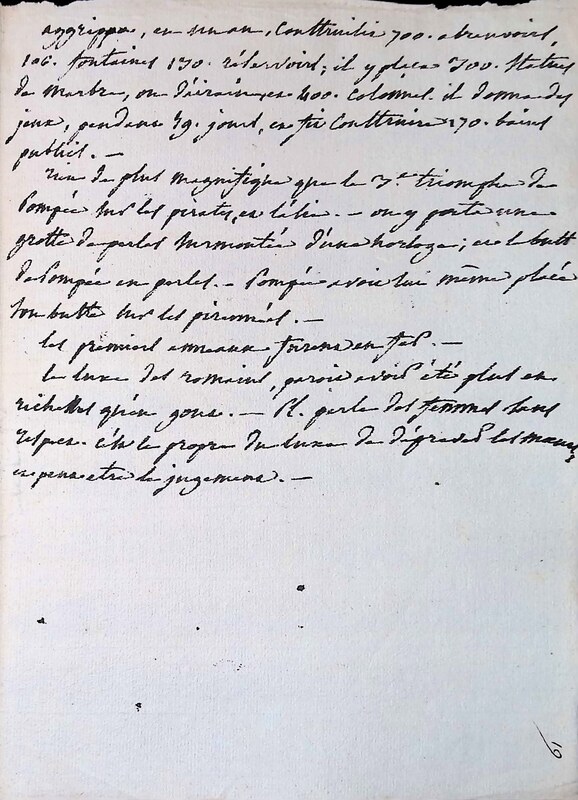 aggrippa, en un an, Construisit 700. abreuvoirs,
106. fontaines 130. réservoirs; il y plaça 300. Statues
de marbre, ou d'airain, et 400. Colonnes. il donna des
jeux, pendant 59. jours, et fit Construire 170. bains
publics. —
rien de plus magnifique que le 3.e triomphe de
Pompée sur les pirates, et l'asie. — on y porta une
grotte de perles surmontée d'une horloge; et le buste
de Pompée en perles. — Pompée avoit lui même placé
son buste sur les pirennées. —
les premiers anneaux furent en fer. —
le luxe des romains, paroit avoir été plus en
richesses qu'en gout. — Pl. parle des femmes sans
respect. c'est le propre du luxe de dégrader les mœurs,
et peut etre le jugement. —
61